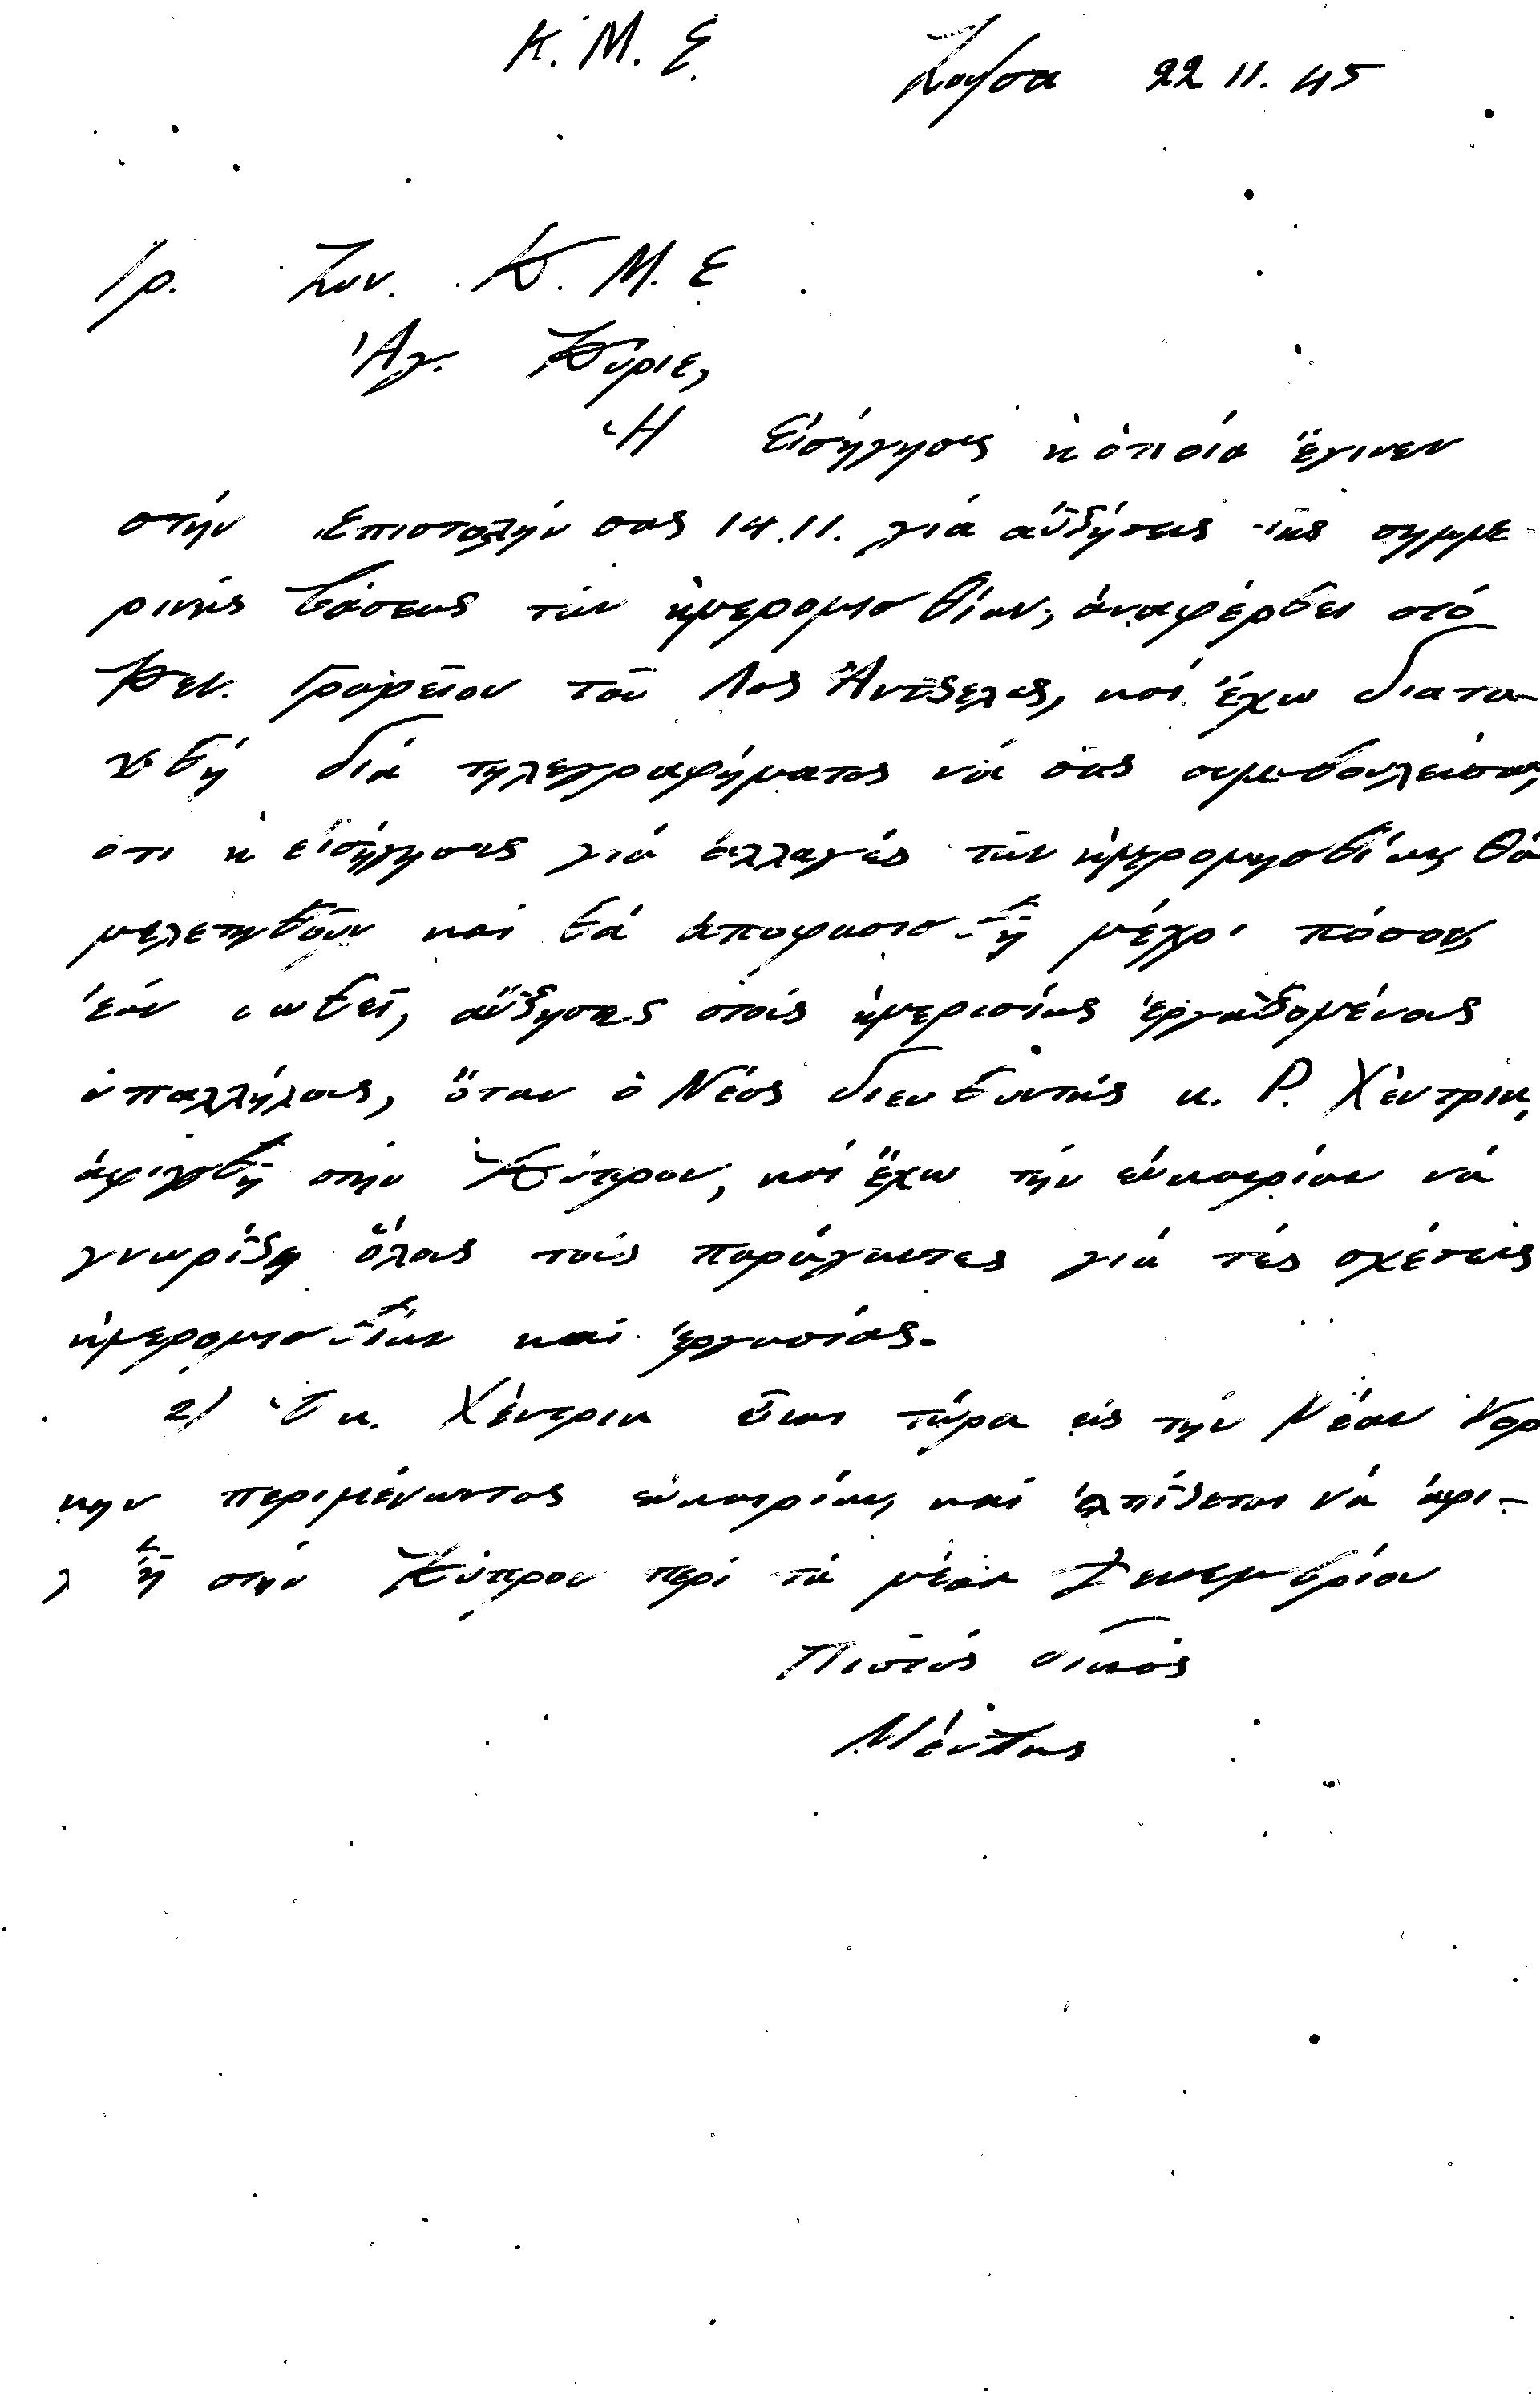 Κ. Μ. Ε. Σκούρ. 22 11. 45
Γρ. Συν. Κ. Μ. Ε
Ἀγ. Κύριε,
Ἡ Εἰσήγησις ἡ ὁποία ἔγινεν
στήν Ἐπιστολήν σας 14.11. γιά αὐξήσεις τῆς σημμε
ρινῆς βάσεως τῶν ἡμερομισθίων, ἀναφέρθει στό
Κεν. Γραφεῖον τοῦ Λος Ἄντζελες, καί ἔχω διατα-
χθῆ διά τηλεγραφήματος νά σας συμβουλεύσω,
οτι ἡ εἰσήγησις γιά ἀλλαγές τῶν ἡμερομησθίων, θά
μελετηθοῦν καί θά ἀποφασισθῆ μέχρι πόσον,
ἐάν δωθεῖ, αὔξησης στούς ἡμερισίως ἐργαζομένους
ὑπαλλήλους, ὅταν ὁ Νέος διευθυντής κ. Ρ. Χέντρικ,
ἀφιχθῆ στήν Κύπρον, καί ἔχω τήν εὐκαιρίαν νά
γνωρίζη ὅλους τούς παράγωντες γιά τές σχέσεις
ἡμερομισθίων καί ἐργασίας.
2) Ὁ κ. Χέντρικ εἶναι τώρα εἰς τήν Νέαν Υορ
κην περιμένωντας εὐκαιρίαν, καί ἐλπίζεται νά ἀφι-
χθῆ στήν Κύπρον περί τά μέσα Δεκεμβρίου
Πιστῶς δικός